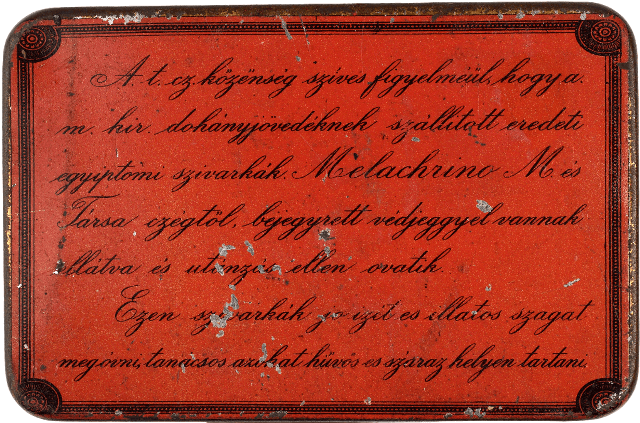 A. t. cz. közönség szives figyelméül, hogy a.
m. kir. dohányjövedéknek szállitott eredeti
egyiptomi szivarkák. Melachrino M és
Társa czégtöl, bejegyzett védjeggyel vannak
ellátva és utánzás ellen ovatik.
Ezen szivarkák jo izét es illatos szagat
megovni, tanácsos azokat hüvös es szaraz helyen tartani.